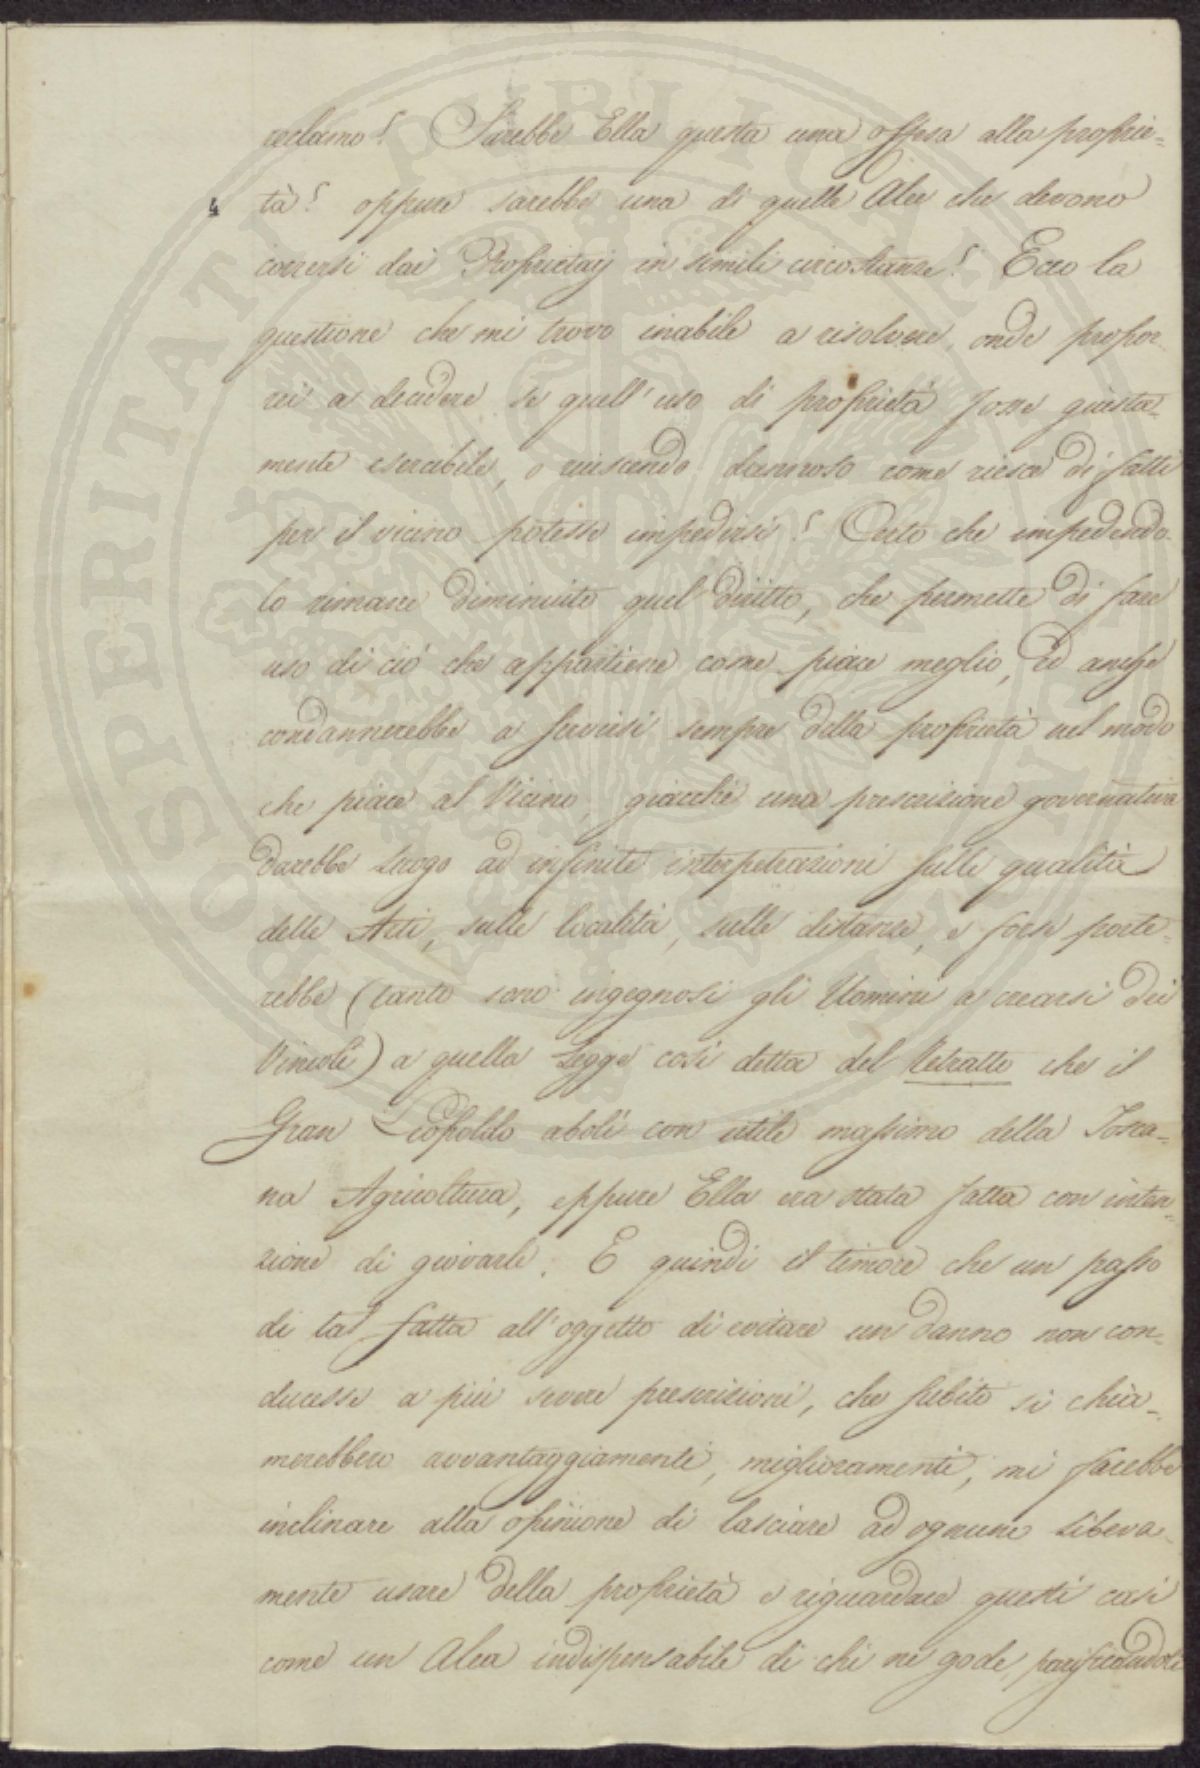 reclamo? Sarebbe Ella questa una offesa alla proprie=
4 tà? oppure sarebbe una di quelle Alee che devono
corrersi dai Proprietarj in simili circostanze? Ecco la
questione che mi trovo inabile a risolvere, onde propor-
rei a decidere se quell'uso di proprietà fosse giusta-
mente eseribile, o riuscendo dannoso come riesce di fatti
per il vicino potesse impedirsi? Certo che impedendo-
lo rimane diminuito quel diritto, che permette di fare
uso di ciò che appartiene come piace meglio, ed anche
condannerebbe a servirsi sempre della proprietà nel modo
che piace al Vicino, giacchè una prescrizione governativa
darebbe luogo ad infinite interpetrazioni sulle qualità
delle Arti, sulle località, sulle distanze, e forse porte-
rebbe (tanto sono ingegnosi gli Uomini a crearsi dei
Vincoli) a quella Legge così detta del Retratto che il
Gran Leopoldo abolì con utile massimo della Tosca=
na Agricoltura, eppure Ella era stata fatta con inten=
zione di giovarle. E quindi il timore che un passo
di tal fatta all'oggetto di evitare un danno non con=
ducesse a più severe prescrizioni, che subito si chia=
merebbero avvantaggiamenti, miglioramenti, mi farebbe
inclinare alla opinione di lasciare ad ognuno libera-
mente usare della proprietà e riguardare questi casi
come un Alea indispensabile di chi ne gode, parificandole
PROSPERITATI PUBLICAE